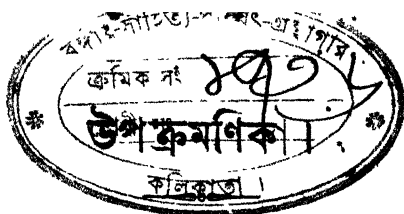 বঙ্গীয়-সাহিত্য-পরিষৎ-গ্রন্থাগার
ক্রমিক নং
উপক্রমণিকা।
কলিকাতা।